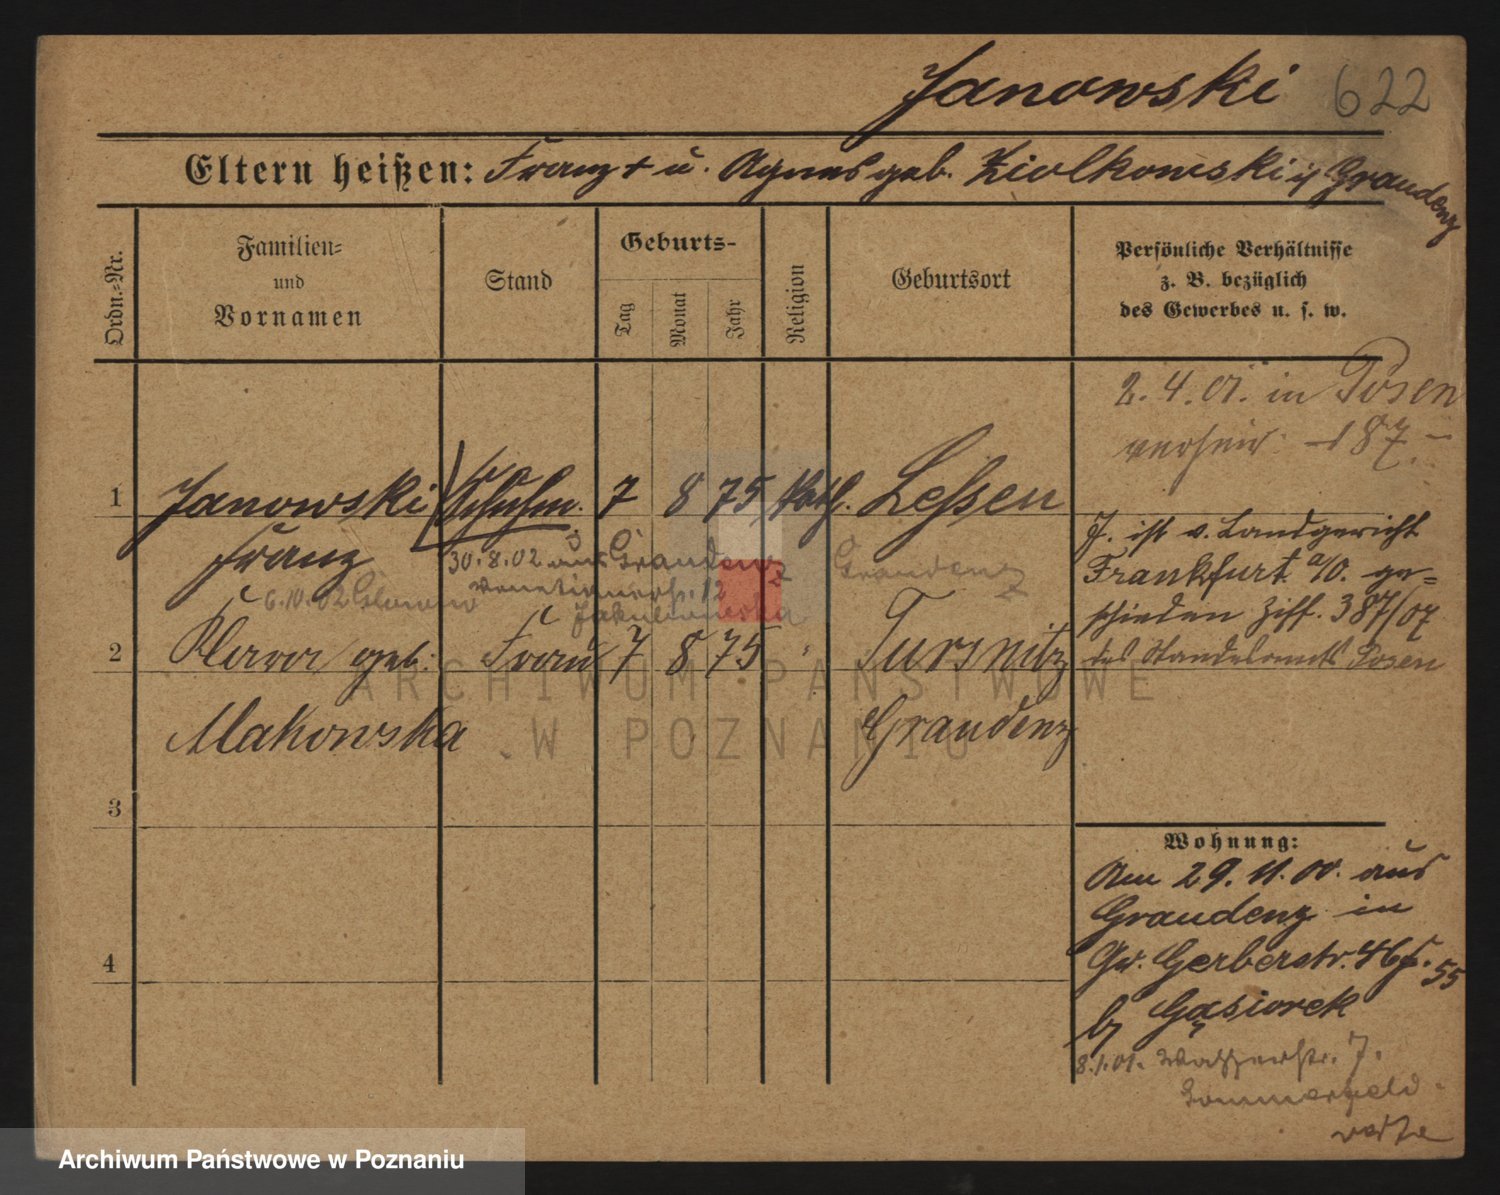 Janowski 622
Eltern heißen: Franz † u. Agnes geb. Ziolkowski in Graudenz
Ordn.-Nr.
Familien-
und
Vornamen
Stand
Geburts-
Tag
Monat
Jahr
Religion
Geburtsort
Persönliche Verhältnisse
z. B. bezüglich
des Gewerbes u. s. w.
2. 4. 01. in Posen
verheir. 187
1 Janowski Schuhm. 7 8 75 kath. Lessen
Franz
30.8.02 aus Graudenz Graudenz
12
6.10.02
J. ist v. Landgericht
Frankfurt a/O. ge=
schieden Ziff. 387/07
des Standesamts Posen
2 Clara geb. Frau 7 8 75 " Tursnitz
Makowska Graudenz
3
4
Wohnung:
Am 29. 11. 00. aus
Graudenz in
Gr. Gerberstr. 46 55
b/ Gąsiorek
8.1.01. Wasserstr. 7.
Sommerfeld
ARCHIWUM PAŃSTWOWE
W POZNANIU
Archiwum Państwowe w Poznaniu